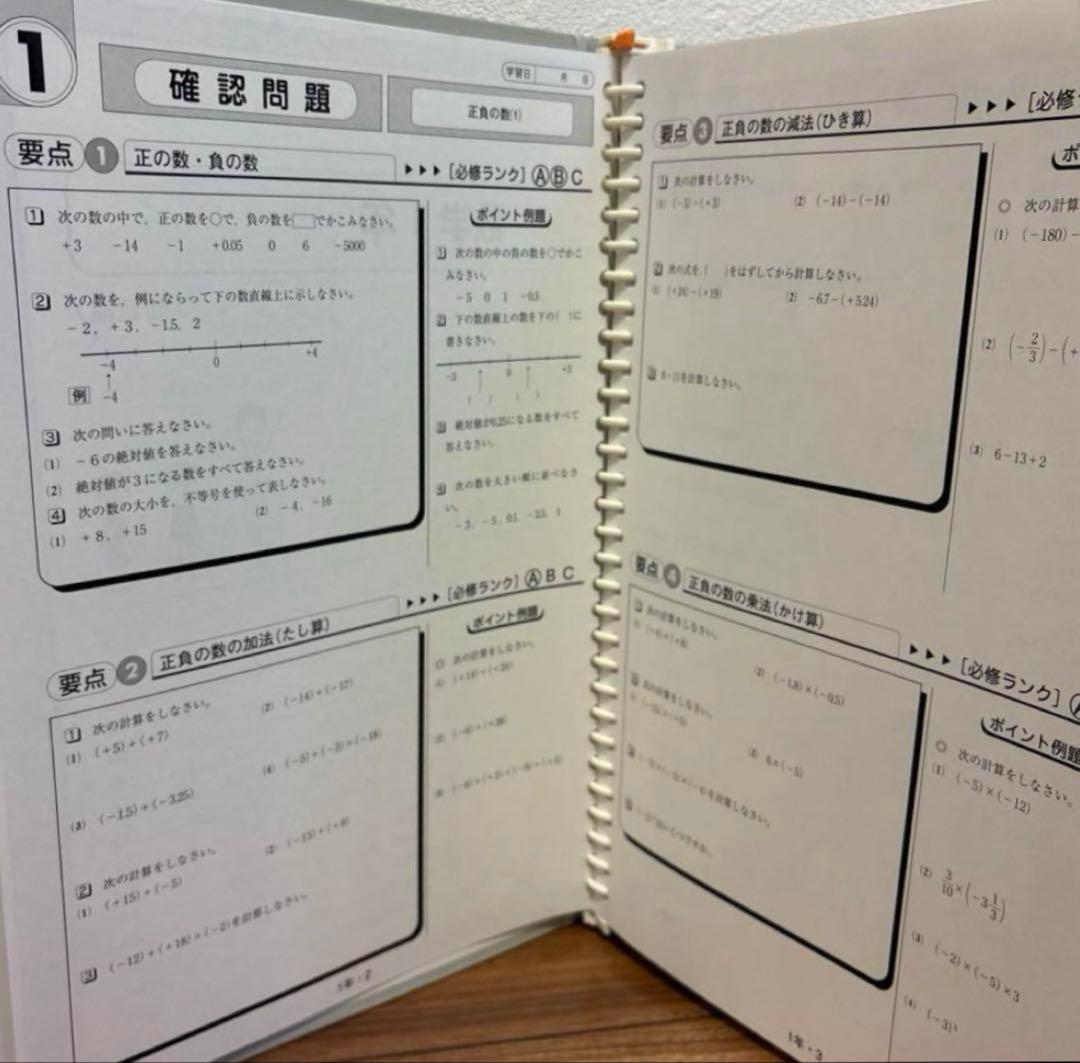 1
確認問題
学習日 月 日
正負の数(1)
要点 1 正の数・負の数
▶▶▶[必修ランク]ⒶⒷC
1 次の数の中で,正の数を○で,負の数を□でかこみなさい。
+3 -14 -1 +0.05 0 6 -5000
2 次の数を,例にならって下の数直線上に示しなさい。
-2, +3, -1.5, 2
-4 0 +4
例 -4
3 次の問いに答えなさい。
(1) -6の絶対値を答えなさい。
(2) 絶対値が3になる数をすべて答えなさい。
4 次の数の大小を,不等号を使って表しなさい。
(1) +8, +15 (2) -4, -16
ポイント例題
1 次の数の中の負の数を○でかこ
みなさい。
-5 0 1 -0.5
2 下の数直線上の数を下の( )に
書きなさい。
-3 0 +3
( ) ( )
3 絶対値が0.25になる数をすべて
答えなさい。
4 次の数を大きい順に並べなさ
い。
-3, -5, 0.1, -2.5, 1
要点 2 正負の数の加法(たし算)
▶▶▶[必修ランク]ⒶB C
1 次の計算をしなさい。
(1) (+5)+(+7) (2) (-14)+(-17)
(3) (-1.5)+(-3.25) (4) (-5)+(-3)+(-18)
2 次の計算をしなさい。
(1) (+15)+(-5) (2) (-13)+(+9)
3 (-12)+(+18)+(-2)を計算しなさい。
ポイント例題
◎ 次の計算をしなさい。
1年・2
要点 3 正負の数の減法(ひき算)
▶▶▶[必修
1 次の計算をしなさい。
(1) (-5)-(+3) (2) (-14)-(-14)
2 次の式を,( )をはずしてから計算しなさい。
(1) (+26)-(+19) (2) -6.7-(+5.24)
3 を計算しなさい。
ポ
◎ 次の計算
(1) (-180)-
(2) (-2/3)-(+
(3) 6-13+2
要点 4 正負の数の乗法(かけ算)
▶▶▶[必修ランク]
1 次の計算をしなさい。
(2) (-1.8)×(-0.5)
2 次の計算をしなさい。
(2) 6×(-5)
を計算しなさい。
ポイント例題
◎ 次の計算をしなさい。
(1) (-5)×(-12)
(2) 3/10×(-3 1/3)
(3) (-2)×(-5)×3
(4)
1年・3